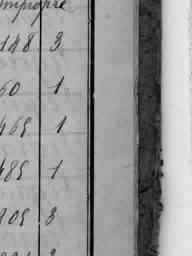 impropre
148 3
60 1
465 1
485 1
905 3